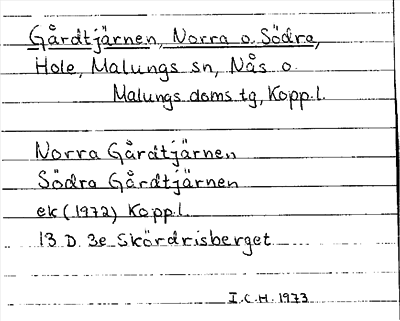 Gårdtjärnen, Norra o. Södra,
Hole, Malungs sn, Nås o.
Malungs doms.tg, Kopp.l.
Norra Gårdtjärnen
Södra Gårdtjärnen
ek (1972) Kopp.l.
13 D. 3e Skördrisberget
I.C.H. 1973